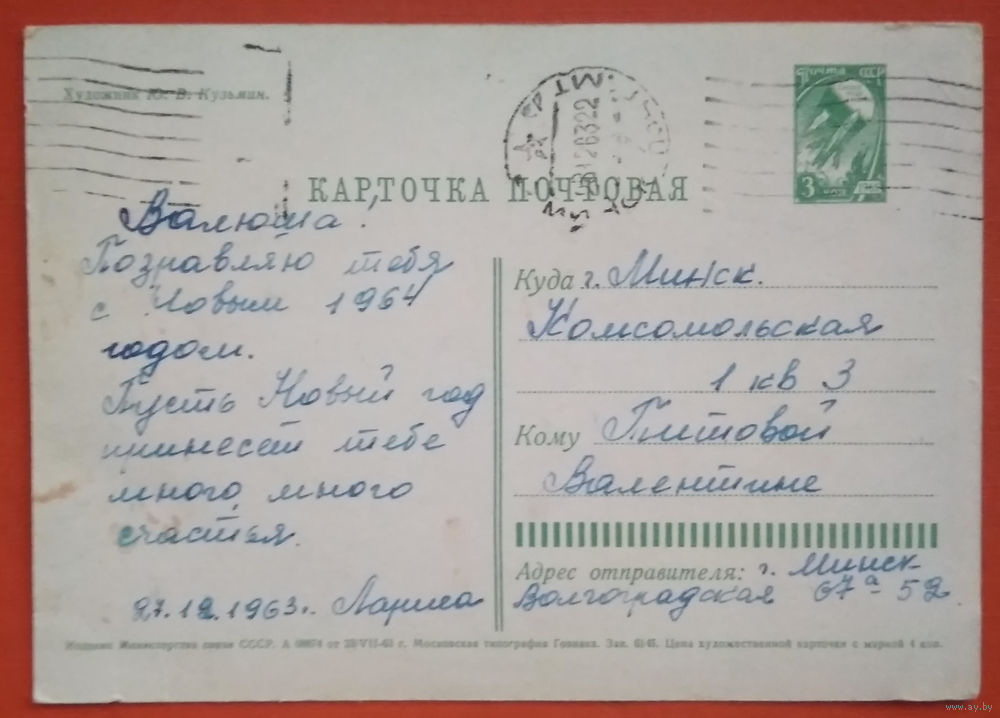 Художник Ю. В. Кузьмин.
ПОЧТА СССР
3
КАРТОЧКА ПОЧТОВАЯ
Валюша!
Поздравляю тебя
с Новым 1964
годом.
Пусть Новый год
принесет тебе
много, много
счастья.
27.12.1963г. Лариса
Куда г. Минск.
Комсомольская
1 кв 3
Кому
Валентине
Адрес отправителя: г. Минск
Волгоградская 67а - 52
Издание Министерства связи СССР. А от г. Московская типография Гознака. Зак. Цена художественной карточки с маркой 4 коп.
www.ay.by